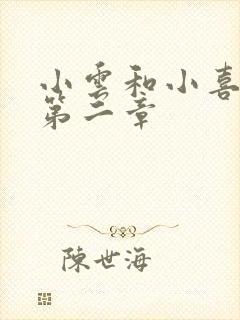 小雲和小喜
第二章
陳世海